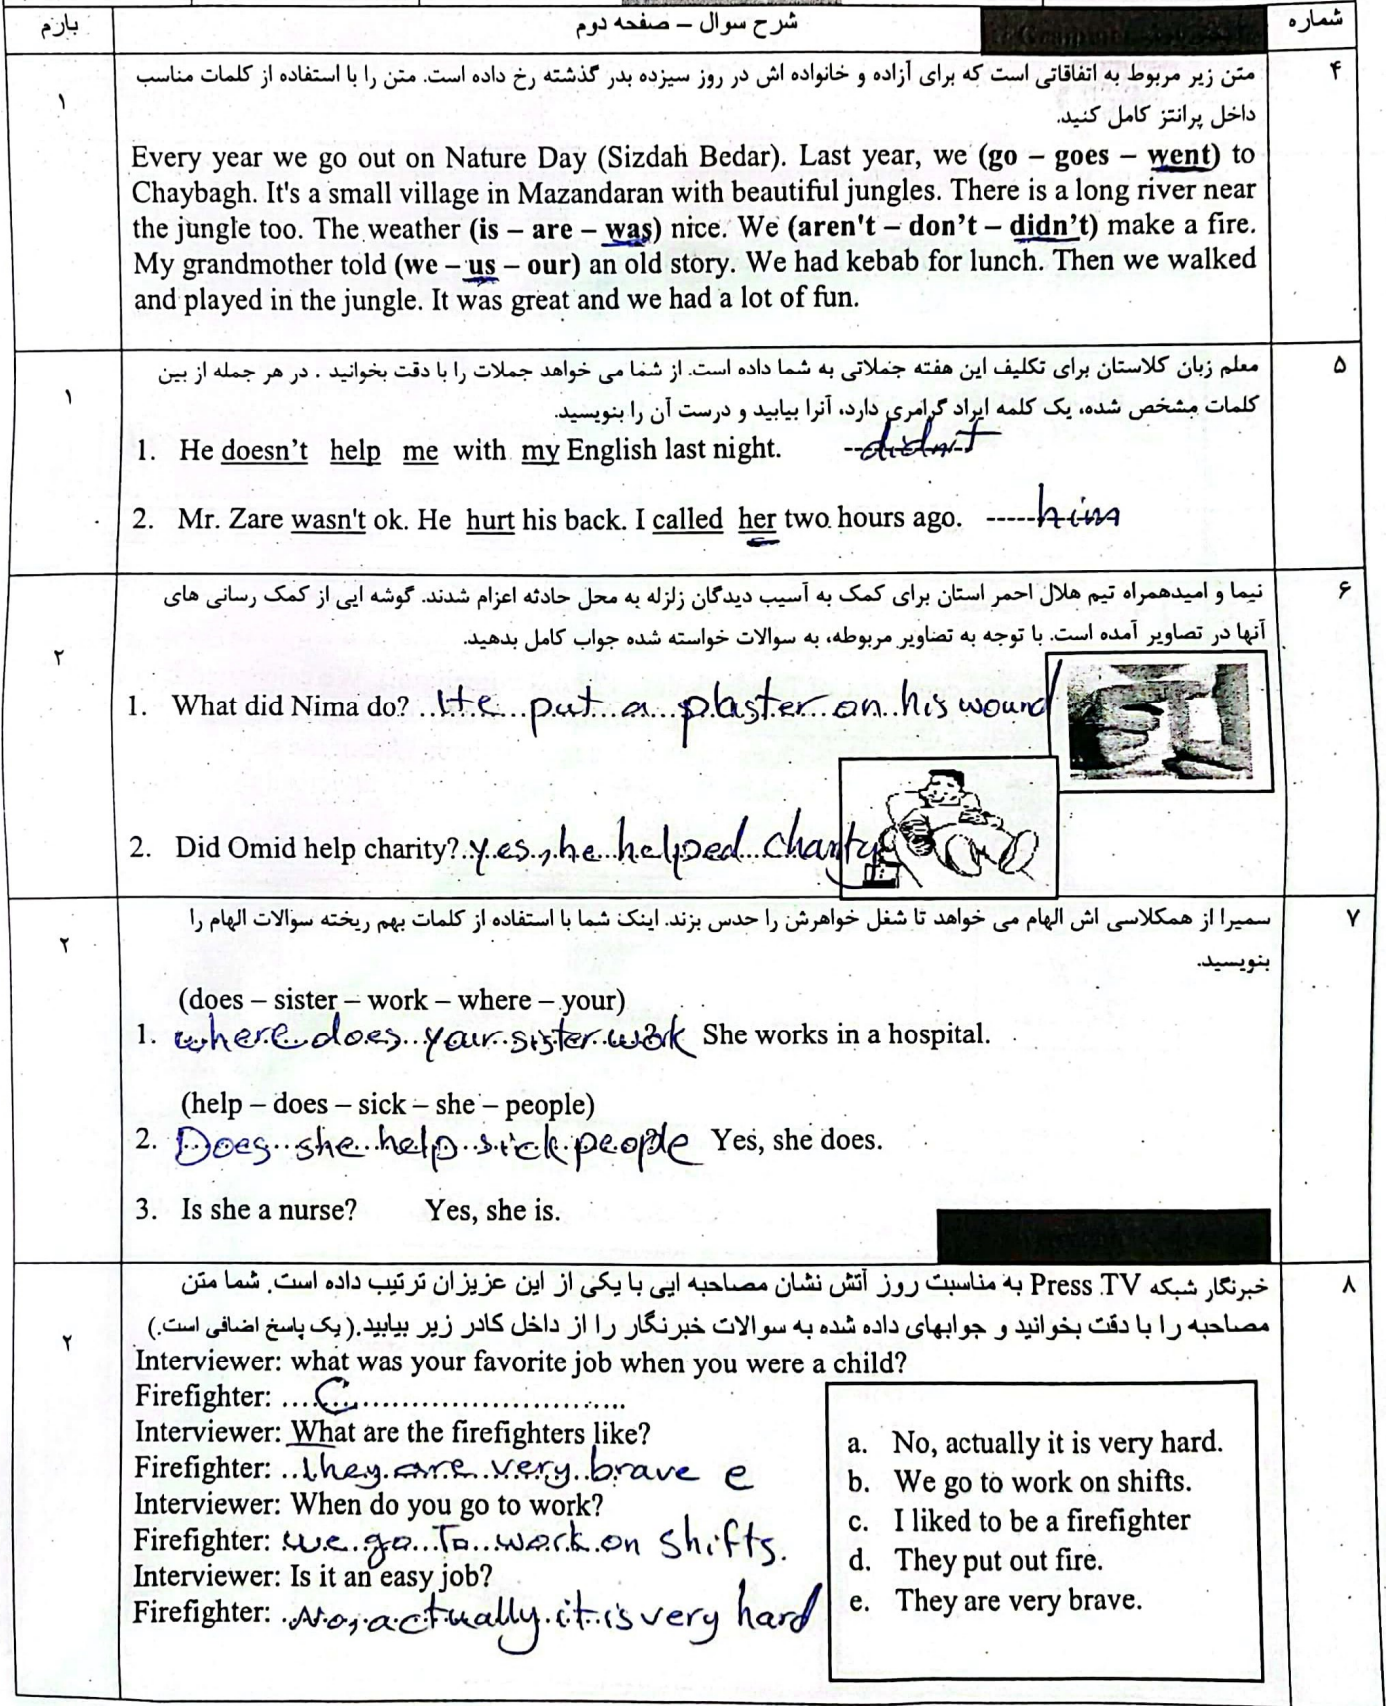 بارم
شرح سوال – صفحه دوم
شماره
۴
متن زیر مربوط به اتفاقاتی است که برای آزاده و خانواده اش در روز سیزده بدر گذشته رخ داده است. متن را با استفاده از کلمات مناسب
داخل پرانتز کامل کنید.
۱
Every year we go out on Nature Day (Sizdah Bedar). Last year, we (go – goes – went) to
Chaybagh. It's a small village in Mazandaran with beautiful jungles. There is a long river near
the jungle too. The weather (is – are – was) nice. We (aren't – don't – didn't) make a fire.
My grandmother told (we – us – our) an old story. We had kebab for lunch. Then we walked
and played in the jungle. It was great and we had a lot of fun.
۵
معلم زبان کلاستان برای تکلیف این هفته جملاتی به شما داده است. از شما می خواهد جملات را با دقت بخوانید . در هر جمله از بین
کلمات مشخص شده، یک کلمه ایراد گرامری دارد، آنرا بیابید و درست آن را بنویسید.
۱
1. He doesn't help me with my English last night. didn't
2. Mr. Zare wasn't ok. He hurt his back. I called her two hours ago. him
۶
نیما و امیدهمراه تیم هلال احمر استان برای کمک به آسیب دیدگان زلزله به محل حادثه اعزام شدند. گوشه ایی از کمک رسانی های
آنها در تصاویر آمده است. با توجه به تصاویر مربوطه، به سوالات خواسته شده جواب کامل بدهید.
۲
1. What did Nima do? He put a plaster on his wound
2. Did Omid help charity? yes, he helped charity
۷
سمیرا از همکلاسی اش الهام می خواهد تا شغل خواهرش را حدس بزند. اینک شما با استفاده از کلمات بهم ریخته سوالات الهام را
بنویسید.
۲
(does – sister – work – where – your)
1. where does your sister work ? She works in a hospital.
(help – does – sick – she – people)
2. Does she help sick people ? Yes, she does.
3. Is she a nurse? Yes, she is.
۸
خبرنگار شبکه Press TV به مناسبت روز آتش نشان مصاحبه ایی با یکی از این عزیزان ترتیب داده است. شما متن
مصاحبه را با دقت بخوانید و جوابهای داده شده به سوالات خبرنگار را از داخل کادر زیر بیابید.( یک پاسخ اضافی است.)
۲
Interviewer: what was your favorite job when you were a child?
Firefighter: C
Interviewer: What are the firefighters like?
Firefighter: they are very brave e
Interviewer: When do you go to work?
Firefighter: we go To work on shifts.
Interviewer: Is it an easy job?
Firefighter: No, actually it is very hard
a. No, actually it is very hard.
b. We go to work on shifts.
c. I liked to be a firefighter
d. They put out fire.
e. They are very brave.